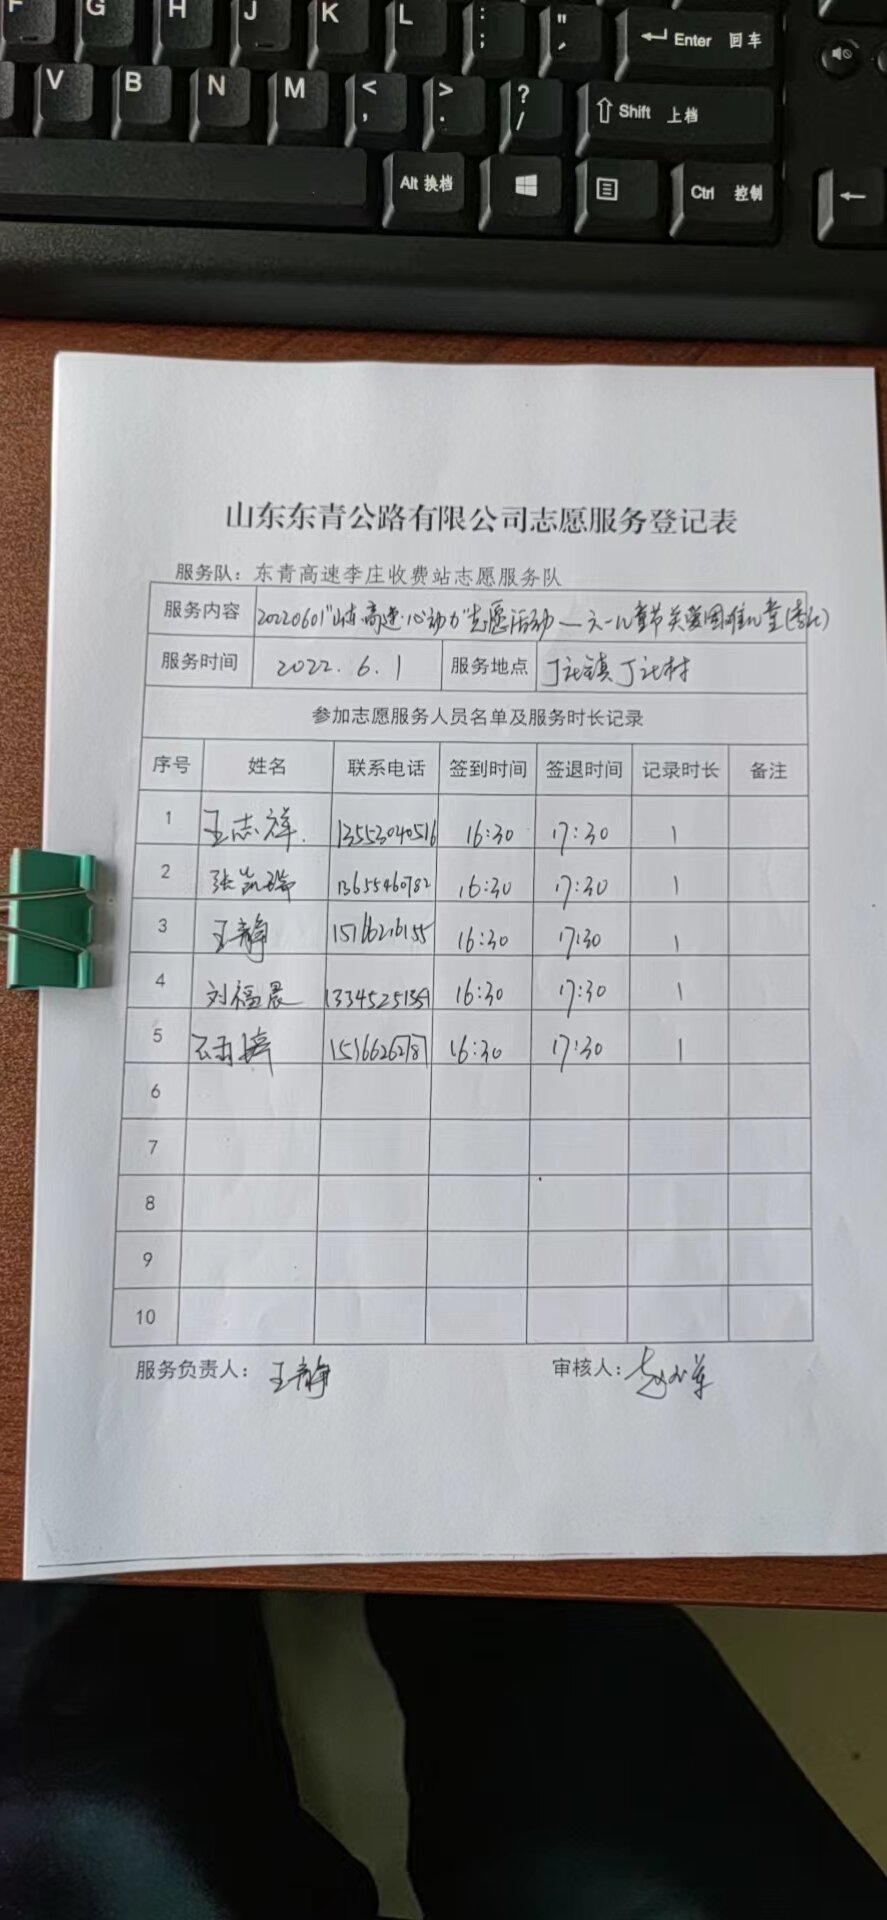 F G H J K L : ; " ' Enter 回车
V B N M < , > . ? / Shift 上档
Alt 换档 Ctrl 控制
山东东青公路有限公司志愿服务登记表
服务队：东青高速李庄收费站志愿服务队
服务内容 20220601"山东高速·心动力"志愿活动—六一儿童节关爱困难儿童
服务时间 2022.6.1 服务地点 丁社镇丁社村
参加志愿服务人员名单及服务时长记录
序号 姓名 联系电话 签到时间 签退时间 记录时长 备注
1 王志祥 13553040516 16:30 17:30 1
2 张凯瑞 13655460782 16:30 17:30 1
3 王静 16:30 17:30 1
4 刘福晨 16:30 17:30 1
5 16:30 17:30 1
6
7
8
9
10
服务负责人：王静 审核人：